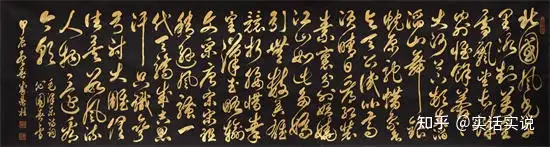 北国风光千
里冰封万里
雪飘望长城内
外惟余莽莽
大河上下顿
失滔滔
山舞银蛇
原驰蜡象欲
与天公试比高
须晴日看红装
素裹分外妖娆
江山如此多娇
引无数英雄
竞折腰惜秦
皇汉武略输
文采唐宗宋祖
稍逊风骚一
代天骄成吉思
汗只识弯
弓射大雕俱
往矣数风流
人物还看
今朝
毛泽东诗词
沁园春雪
甲辰
知乎 @实话实说